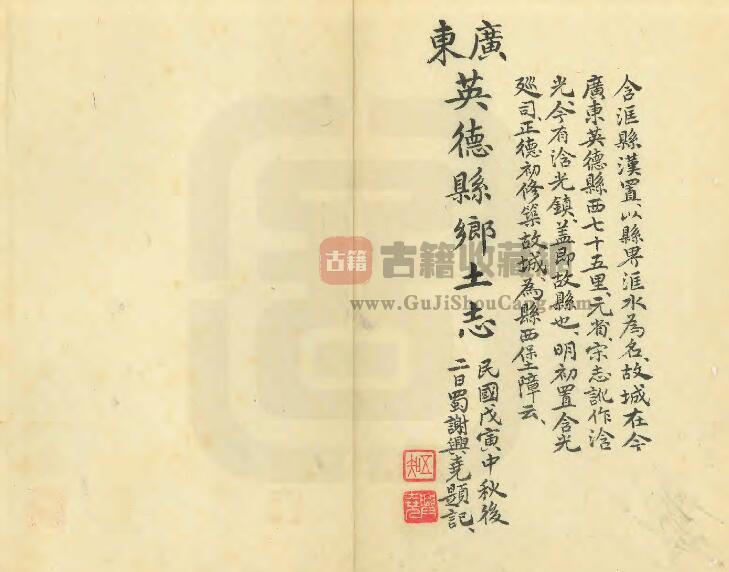 含洭縣漢置、以縣界洭水為名、故城在今
廣東英德縣西七十五里、元省、宋志訛作浛
光、今有浛光鎮、蓋即故縣也、明初置含光
廵司、正德初修築故城、為縣西保障云、
廣東
英德縣鄉土志
民國戊寅中秋後
二日蜀謝興堯題記、
古籍
古籍收藏
www.GuJiShouCang.com